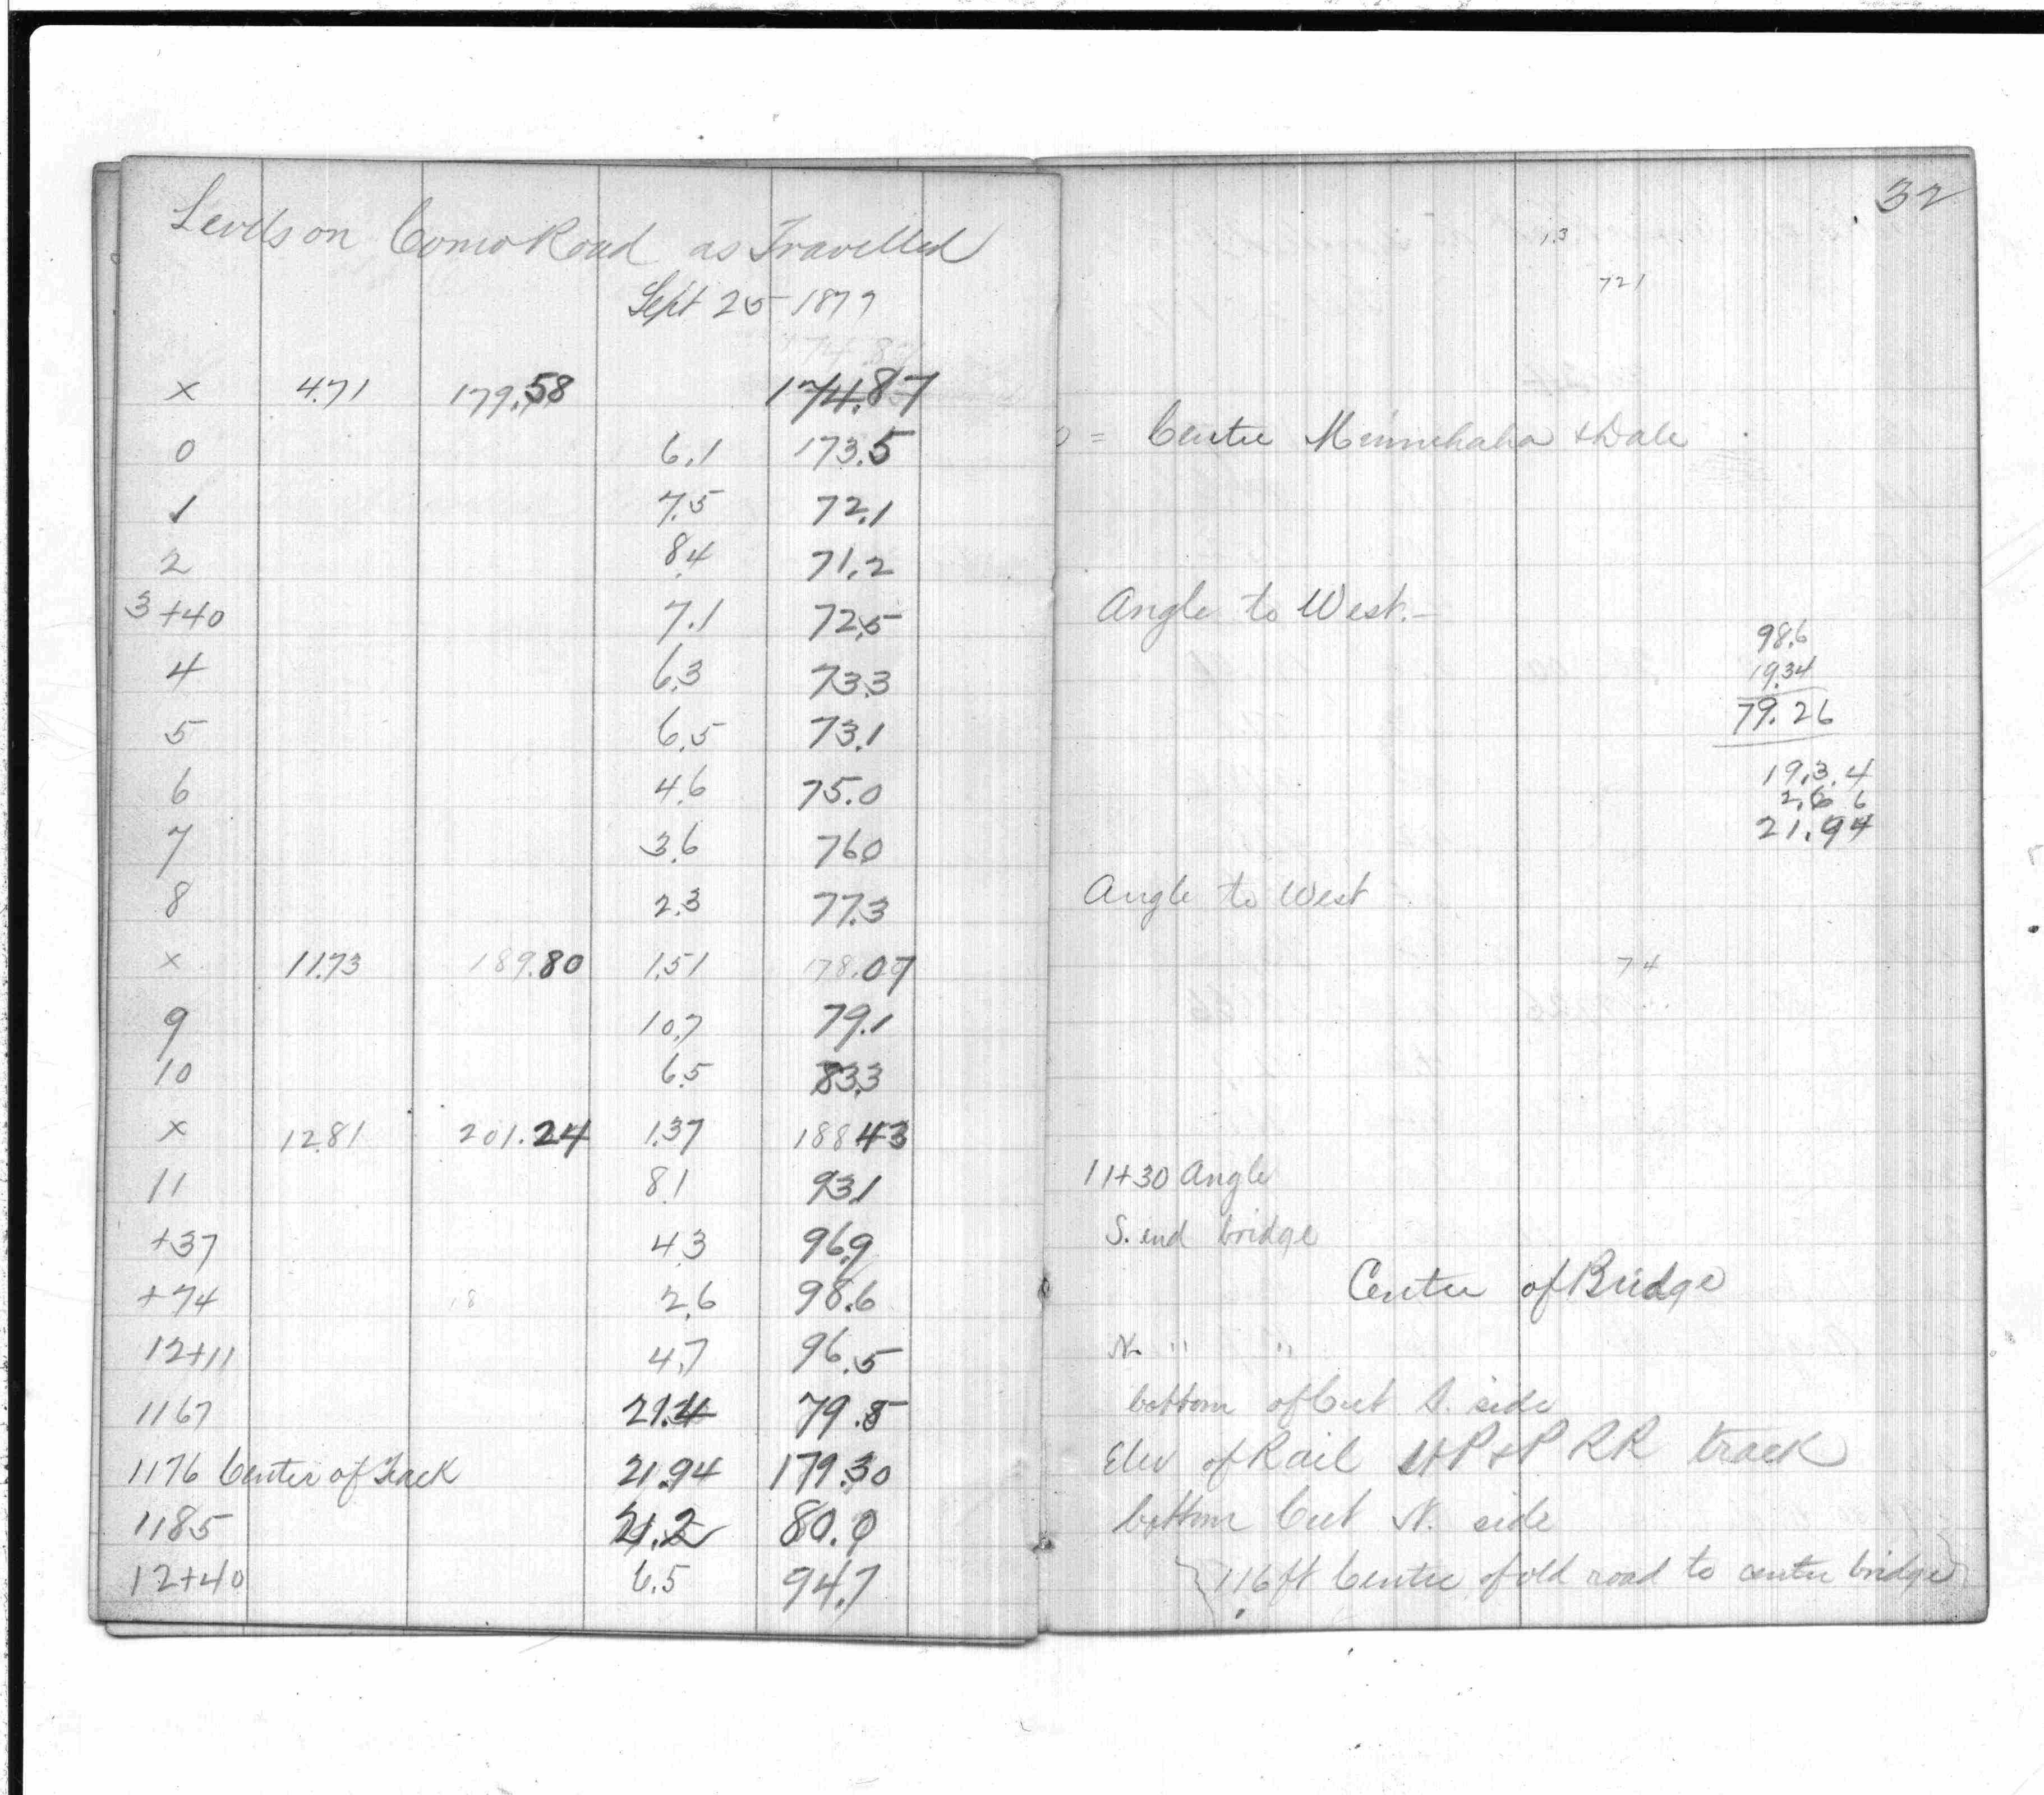 Levels on Como Road as Travelled
Sept 25 1877
x 4.71 179.58 174.87
0 6.1 173.5
1 7.5 72.1
2 8.4 71.2
3+40 7.1 72.5
4 6.3 73.3
5 6.5 73.1
6 4.6 75.0
7 3.6 76.0
8 2.3 77.3
x 11.73 189.80 1.51 178.07
9 10.7 79.1
10 6.5 83.3
x 12.81 201.24 1.37 188.43
11 8.1 93.1
+37 4.3 96.9
+74 2.6 98.6
12+11 4.7 96.5
1167 21.4 79.8
1176 Center of Track 21.94 179.30
1185 21.2 80.0
12+40 6.5 94.7
32
1.3
721
0 = Centre Minnehaha & Dale
Angle to West.–
98.6
19.34
79.26
19.3.4
2.6 6
21.94
Angle to West
74
11+30 Angle
S. end bridge
Centre of Bridge
N. " "
bottom of Cut S. side
Elev of Rail StP&P RR track
bottom Cut N. side
116 ft Centre of old road to centre bridge